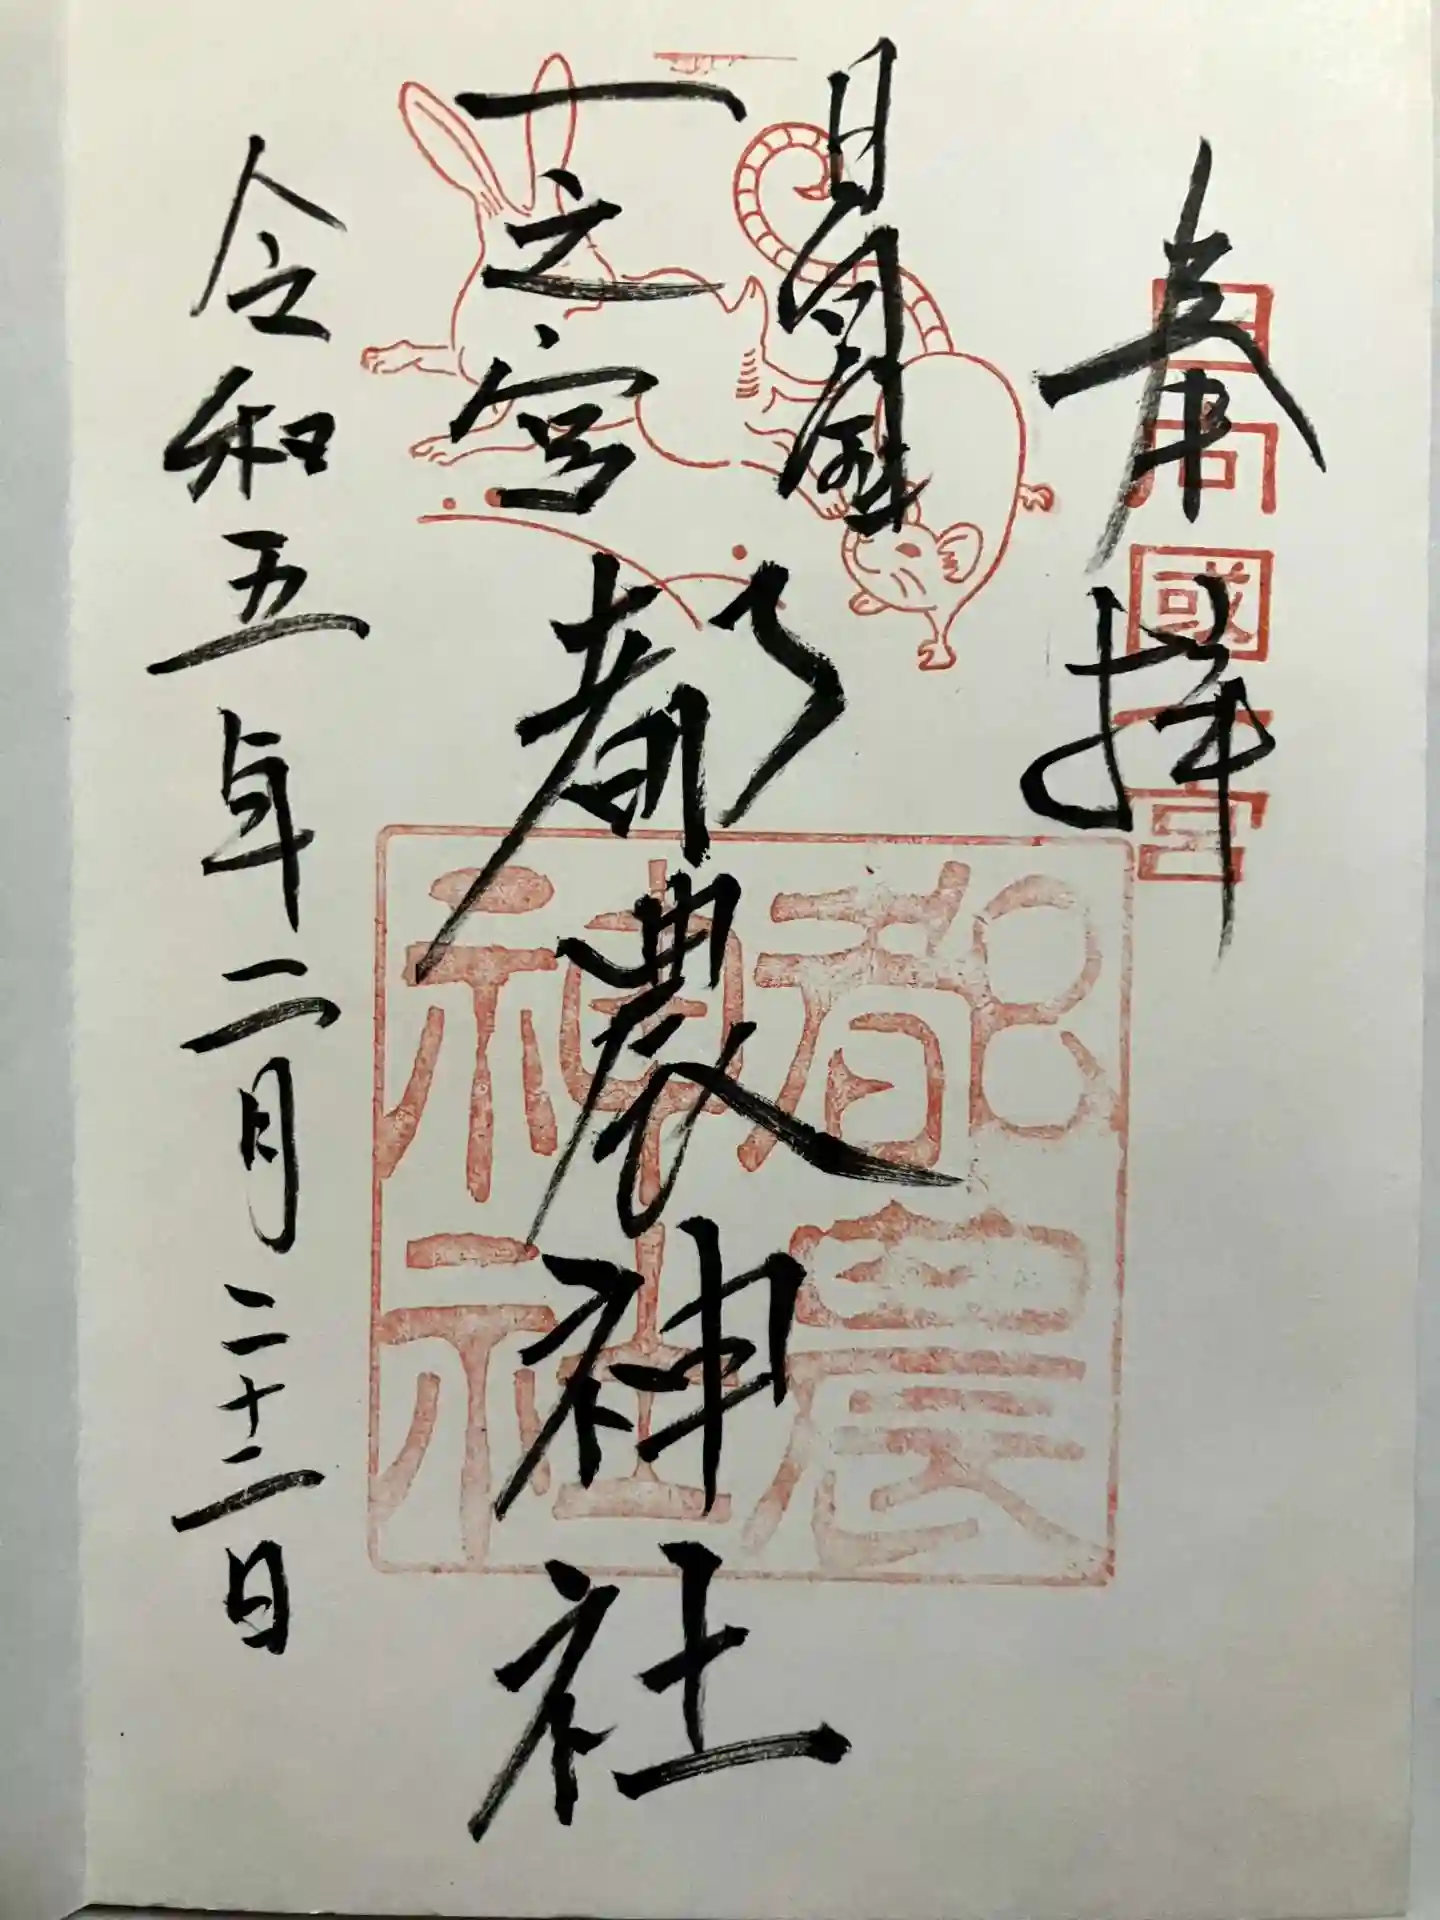 奉拝
日向國一宮
日向國
一之宮
都農神社
都農神社
令和五年二月二十二日